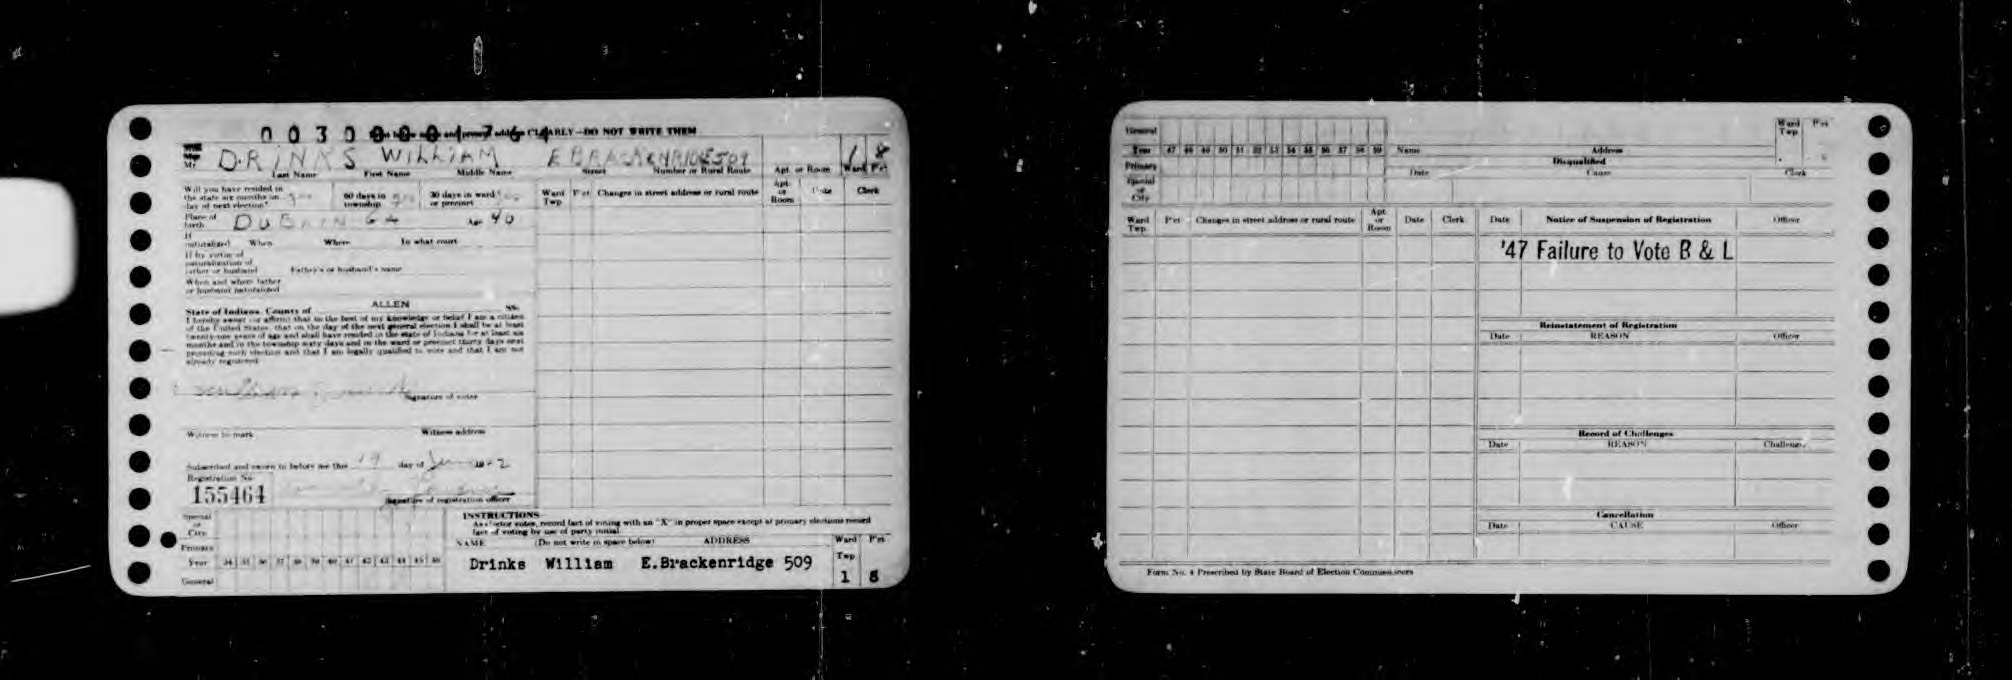 00300001764
CLEARLY—DO NOT WRITE THEM
Mr. DRINKS WILLIAM E BRACKENRIDGE 509 1 8
Last Name First Name Middle Name Street Number or Rural Route Apt. or Room Ward Pct
Will you have resided in the state six months on day of next election? 60 days in township 30 days in ward or precinct
Ward Twp Pct Changes in street address or rural route Apt. or Room Date Clerk
Place of birth DUBLIN GA Age 40
If naturalized When Where In what court
If by virtue of naturalization of father or husband Father's or husband's name
When and where father or husband naturalized
State of Indiana, County of ALLEN ss:
I hereby swear (or affirm) that to the best of my knowledge or belief I am a citizen
of the United States, that on the day of the next general election I shall be at least
twenty-one years of age and shall have resided in the state of Indiana for at least six
months and in the township sixty days and in the ward or precinct thirty days next
preceding such election and that I am legally qualified to vote and that I am not
already registered.
Signature of voter
Witness to mark Witness address
Subscribed and sworn to before me this 19 day of
Registration No.
155464
Signature of registration officer
Special or City
Primary
Year 34 35 36 37 38 39 40 41 42 43 44 45 46
General
INSTRUCTIONS
As elector votes, record fact of voting with an "X" in proper space except at primary elections record
fact of voting by use of party initial.
NAME (Do not write in space below) ADDRESS Ward Twp Pct
Drinks William E.Brackenridge 509 1 8
General
Year 47 48 49 50 51 52 53 54 55 56 57 58 59 Name Address Ward Twp Pct
Primary Disqualified
Special or City Date Cause Clerk
Ward Twp. Pct Changes in street address or rural route Apt. or Room Date Clerk
Date Notice of Suspension of Registration Officer
'47 Failure to Vote B & L
Reinstatement of Registration
Date REASON Officer
Record of Challenges
Date REASON Challenger
Cancellation
Date CAUSE Officer
Form No. 4 Prescribed by State Board of Election Commissioners